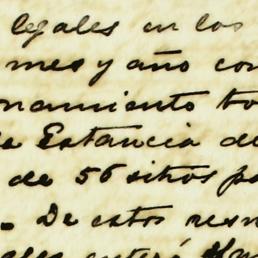 legales en los
mes y año con
namiento to
Estancia de
de 56 sitios pa
. De estos res